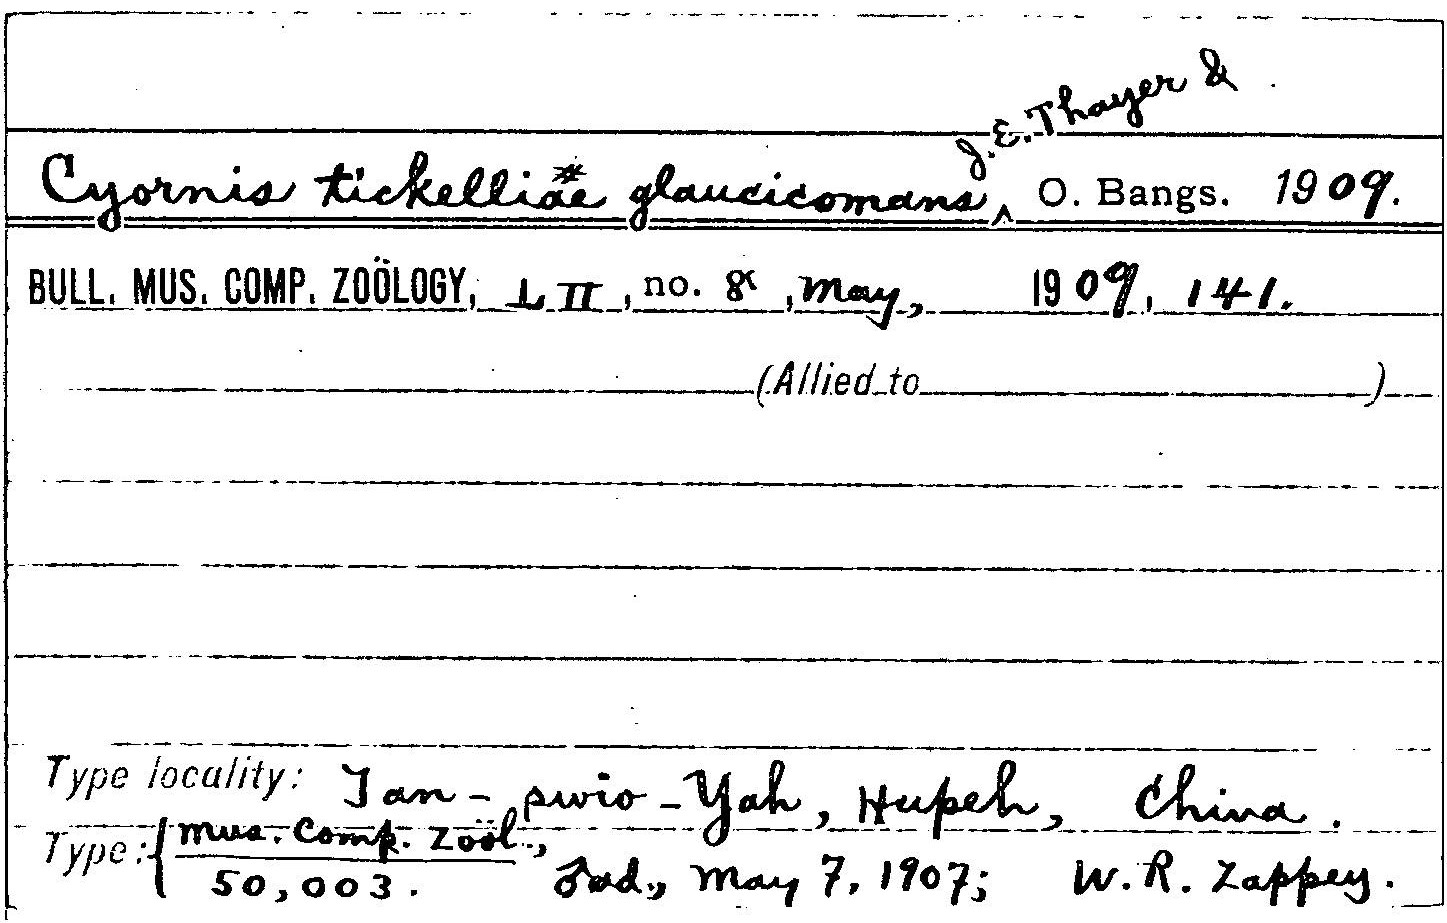 J. E. Thayer &
Cyornis tickelliae glaucicomans ‸ O. Bangs. 1909.
BULL. MUS. COMP. ZOÖLOGY, LII, no. 8, May, 1909, 141.
(Allied to )
Type locality: Tan-swio-Yah, Hupeh, China.
Type: { Mus. Comp. Zoöl.,
50,003. ♂ad., May 7, 1907; W. R. Zappey.